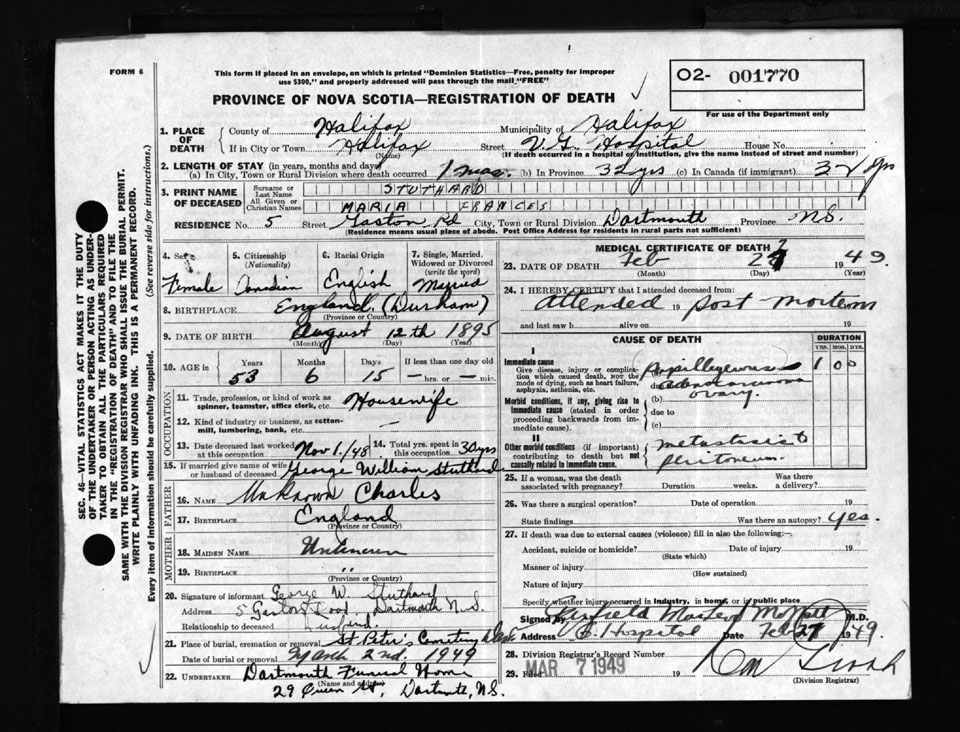 FORM 6
This form if placed in an envelope, on which is printed "Dominion Statistics—Free, penalty for improper
use $300," and properly addressed will pass through the mail "FREE"
PROVINCE OF NOVA SCOTIA—REGISTRATION OF DEATH
O2- 001770
For use of the Department only
1. PLACE OF DEATH
County of Halifax Municipality of Halifax
If in City or Town Halifax Street V.G. Hospital House No.
(Name) (If death occurred in a hospital or institution, give the name instead of street and number)
2. LENGTH OF STAY (in years, months and days)
(a) In City, Town or Rural Division where death occurred 1 mos. (b) In Province 32 yrs (c) In Canada (if immigrant) 32 yrs
3. PRINT NAME OF DECEASED
Surname or Last Name STUTHARD
All Given or Christian Names MARIA FRANCES
RESIDENCE No. 5 Street Gaston Rd City, Town or Rural Division Dartmouth Province N.S.
(Residence means usual place of abode. Post Office Address for residents in rural parts not sufficient)
4. Sex Female
5. Citizenship (Nationality) Canadian
6. Racial Origin English
7. Single, Married, Widowed or Divorced (write the word) Married
8. BIRTHPLACE England (Durham)
(Province or Country)
9. DATE OF BIRTH August 12th 1895
(Month) (Day) (Year)
10. AGE in Years Months Days If less than one day old
53 6 15 — hrs. or — min.
OCCUPATION
11. Trade, profession, or kind of work as spinner, teamster, office clerk, etc. Housewife
12. Kind of industry or business, as cotton-mill, lumbering, bank, etc. —
13. Date deceased last worked at this occupation Nov 1/48 14. Total yrs. spent in this occupation 30 yrs
15. If married give name of wife or husband of deceased George William Stuthard
FATHER
16. NAME Unknown Charles
17. BIRTHPLACE England
(Province or Country)
MOTHER
18. MAIDEN NAME Unknown
19. BIRTHPLACE "
(Province or Country)
20. Signature of informant George W. Stuthard
Address 5 Gaston Road, Dartmouth N.S.
Relationship to deceased Husband.
21. Place of burial, cremation or removal St Peter's Cemetery
Date of burial or removal March 2nd. 1949
22. UNDERTAKER Dartmouth Funeral Home
(Name and address)
29 Queen St, Dartmouth, N.S.
MEDICAL CERTIFICATE OF DEATH
23. DATE OF DEATH Feb 27 1949.
(Month) (Day) (Year)
24. I HEREBY CERTIFY that I attended deceased from:
attended 19 post-mortem
and last saw h alive on 19
CAUSE OF DEATH
DURATION
YRS. MOS. DYS.
I
Immediate cause
Give disease, injury or complication which caused death, NOT the mode of dying, such as heart failure, asphyxia, asthenia, etc.
1 0 0
Morbid conditions, if any, giving rise to immediate cause (stated in order proceeding backwards from immediate cause).
(b)
due to
(c)
ovary.
II
Other morbid conditions (if important) contributing to death but not causally related to immediate cause.
peritoneum.
25. If a woman, was the death associated with pregnancy? Duration weeks. Was there a delivery?
26. Was there a surgical operation? Date of operation 19
State findings Was there an autopsy? yes.
27. If death was due to external causes (violence) fill in also the following:
Accident, suicide or homicide? Date of injury 19
(State which)
Manner of injury
(How sustained)
Nature of injury
Specify whether injury occurred in industry, in home, or in public place
Signed by M.D.
Address Hospital Date Feb 27 1949.
28. Division Registrar's Record Number
29. Filed MAR 7 1949 19
(Division Registrar)
SEC. 46—VITAL STATISTICS ACT MAKES IT THE DUTY
OF THE UNDERTAKER OR PERSON ACTING AS UNDER-
TAKER TO OBTAIN ALL THE PARTICULARS REQUIRED
IN THE "REGISTRATION OF DEATH" AND TO FILE THE
SAME WITH THE DIVISION REGISTRAR WHO SHALL ISSUE THE BURIAL PERMIT.
WRITE PLAINLY WITH UNFADING INK. THIS IS A PERMANENT RECORD.
Every item of information should be carefully supplied. (See reverse side for instructions.)